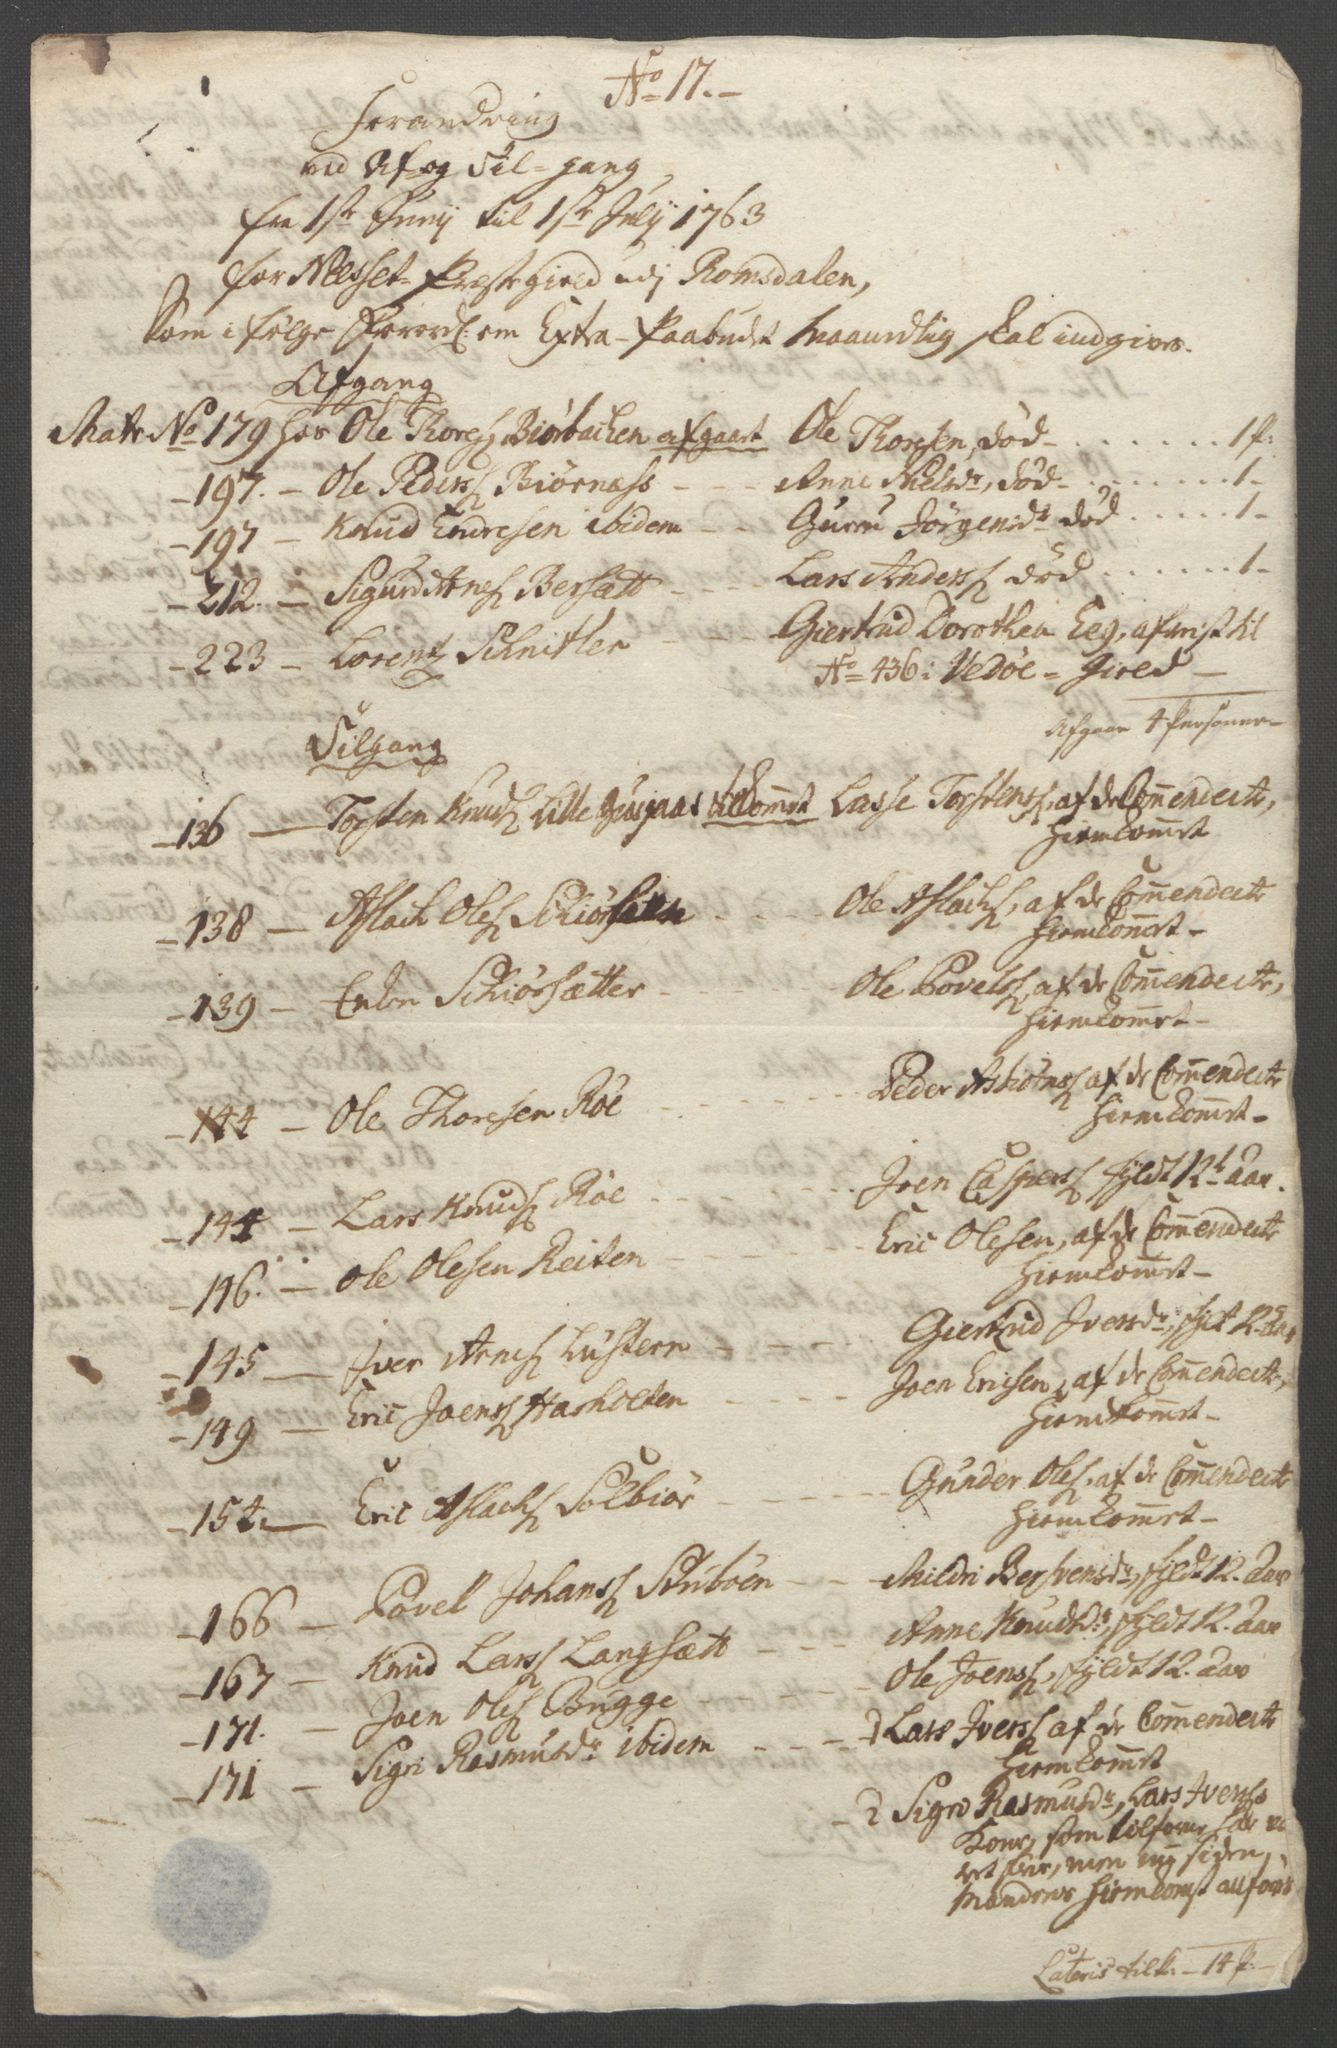 No 17.
Forandring
ved Af- og Til-gang,
fra 1ste Junij til 1ste Julij 1763
for Nesset- Præstegield udj Romsdalen,
Som i følge Forordn: om Extra-Paabudet maanedtlig skal indgives.
Afgang
Matr No 179 hos Ole Thores Biørbachen afgaaet Ole Thoresen, død 1 p:
- 197. - Ole Peders Biørnæss - - Anne Nielsdr, død 1 -
- 197 - Knud Endresen ibidem - - Guru Jørgensdr død 1 -
- 212. - Sigurd Arnes Bersætt - - Lars Anders død 1 -
- 223 - Lorentz Schnitler - - Giertrud Dorothea Eeg, afreist til
No 436 i Vedøe - Gield -
Afgaar 4 Personer -
Tilgang
- 136 - Torsten Knuds Lille tilkommet Lasse Torstens, af de Commenderte,
hiemkommet
- 138 - Aslach Oles Schiørsætter - - Ole Aslachs, af de Commenderte
hiemkommet -
- 139 - Schiørsætter - - Ole Povels, af de Commenderte,
hiemkommet -
- 144 - Ole Thoresen Röe - - Peder Asbiørns af de Commenderte
hiemkommet -
- 144 - Lars Knuds Röe - - Joen Caspers fyldt 12t Aar.
- 146. - Ole Olesen Reiten - - Eric Olesen, af de Commenderte
hiemkommet -
- 145 - Iver Arnes Lustern - - Giertrud Iversdr, fyldt 12. Aar
- 149 - Eric Joens Hasholten - - Joen Ericsen, af de Commenderte,
hiemkommet -
- 154. - Eric Aslachs Solbiør - - Gunder Oles, af de Commenderte
hiemkommet -
- 166 - Povel Johans Stuböen - - Mildri Bersvensdr, fyldt 12. Aar
- 167 - Knud Lars Langsætt - - Anne Knudsdr, fyldt 12. Aar
- 171. - Joen Oles Bugge - - Ole Joens, fyldt 12. Aar
- 171 - Sigri Rasmusdr ibidem - - 1 Lars Ivers af de Commenderte
hiemkommet
- 2 Sigri Rasmusdr, Lars Iverss
Kone, som tilforn har væ
ret frie, men nu siden,
Mandens hiemkomst
Lateris tilk: - 14 p: -